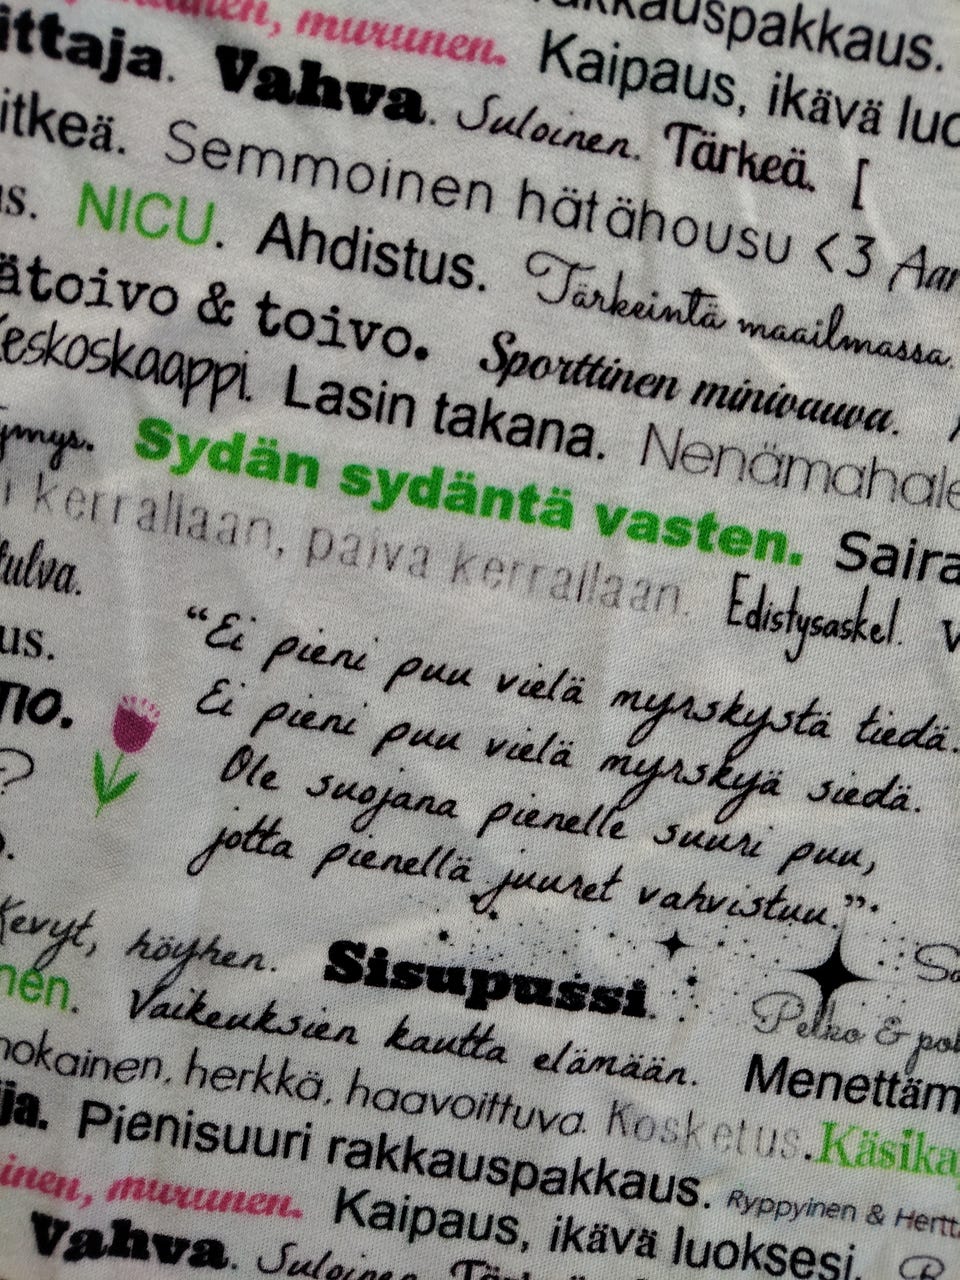 murunen. rakkauspakkaus.
Vahva. Kaipaus, ikävä
Suloinen. Tärkeä. [
Semmoinen hätähousu <3
NICU. Ahdistus. Tärkeintä maailmassa.
& toivo. Sporttinen minivauva.
Keskoskaappi. Lasin takana.
Sydän sydäntä vasten.
kerrallaan, päivä kerrallaan. Edistysaskel.
“Ei pieni puu vielä myrskystä tiedä.
Ei pieni puu vielä myrskyä siedä.
Ole suojana pienelle suuri puu,
jotta pienellä juuret vahvistuu.”.
Kevyt, höyhen. Sisupussi.
Pelko &
Vaikeuksien kautta elämään.
herkkä, haavoittuva. Kosketus.
Pienisuuri rakkauspakkaus. Ryppyinen &
murunen. Kaipaus, ikävä luoksesi.
Vahva. Suloinen.